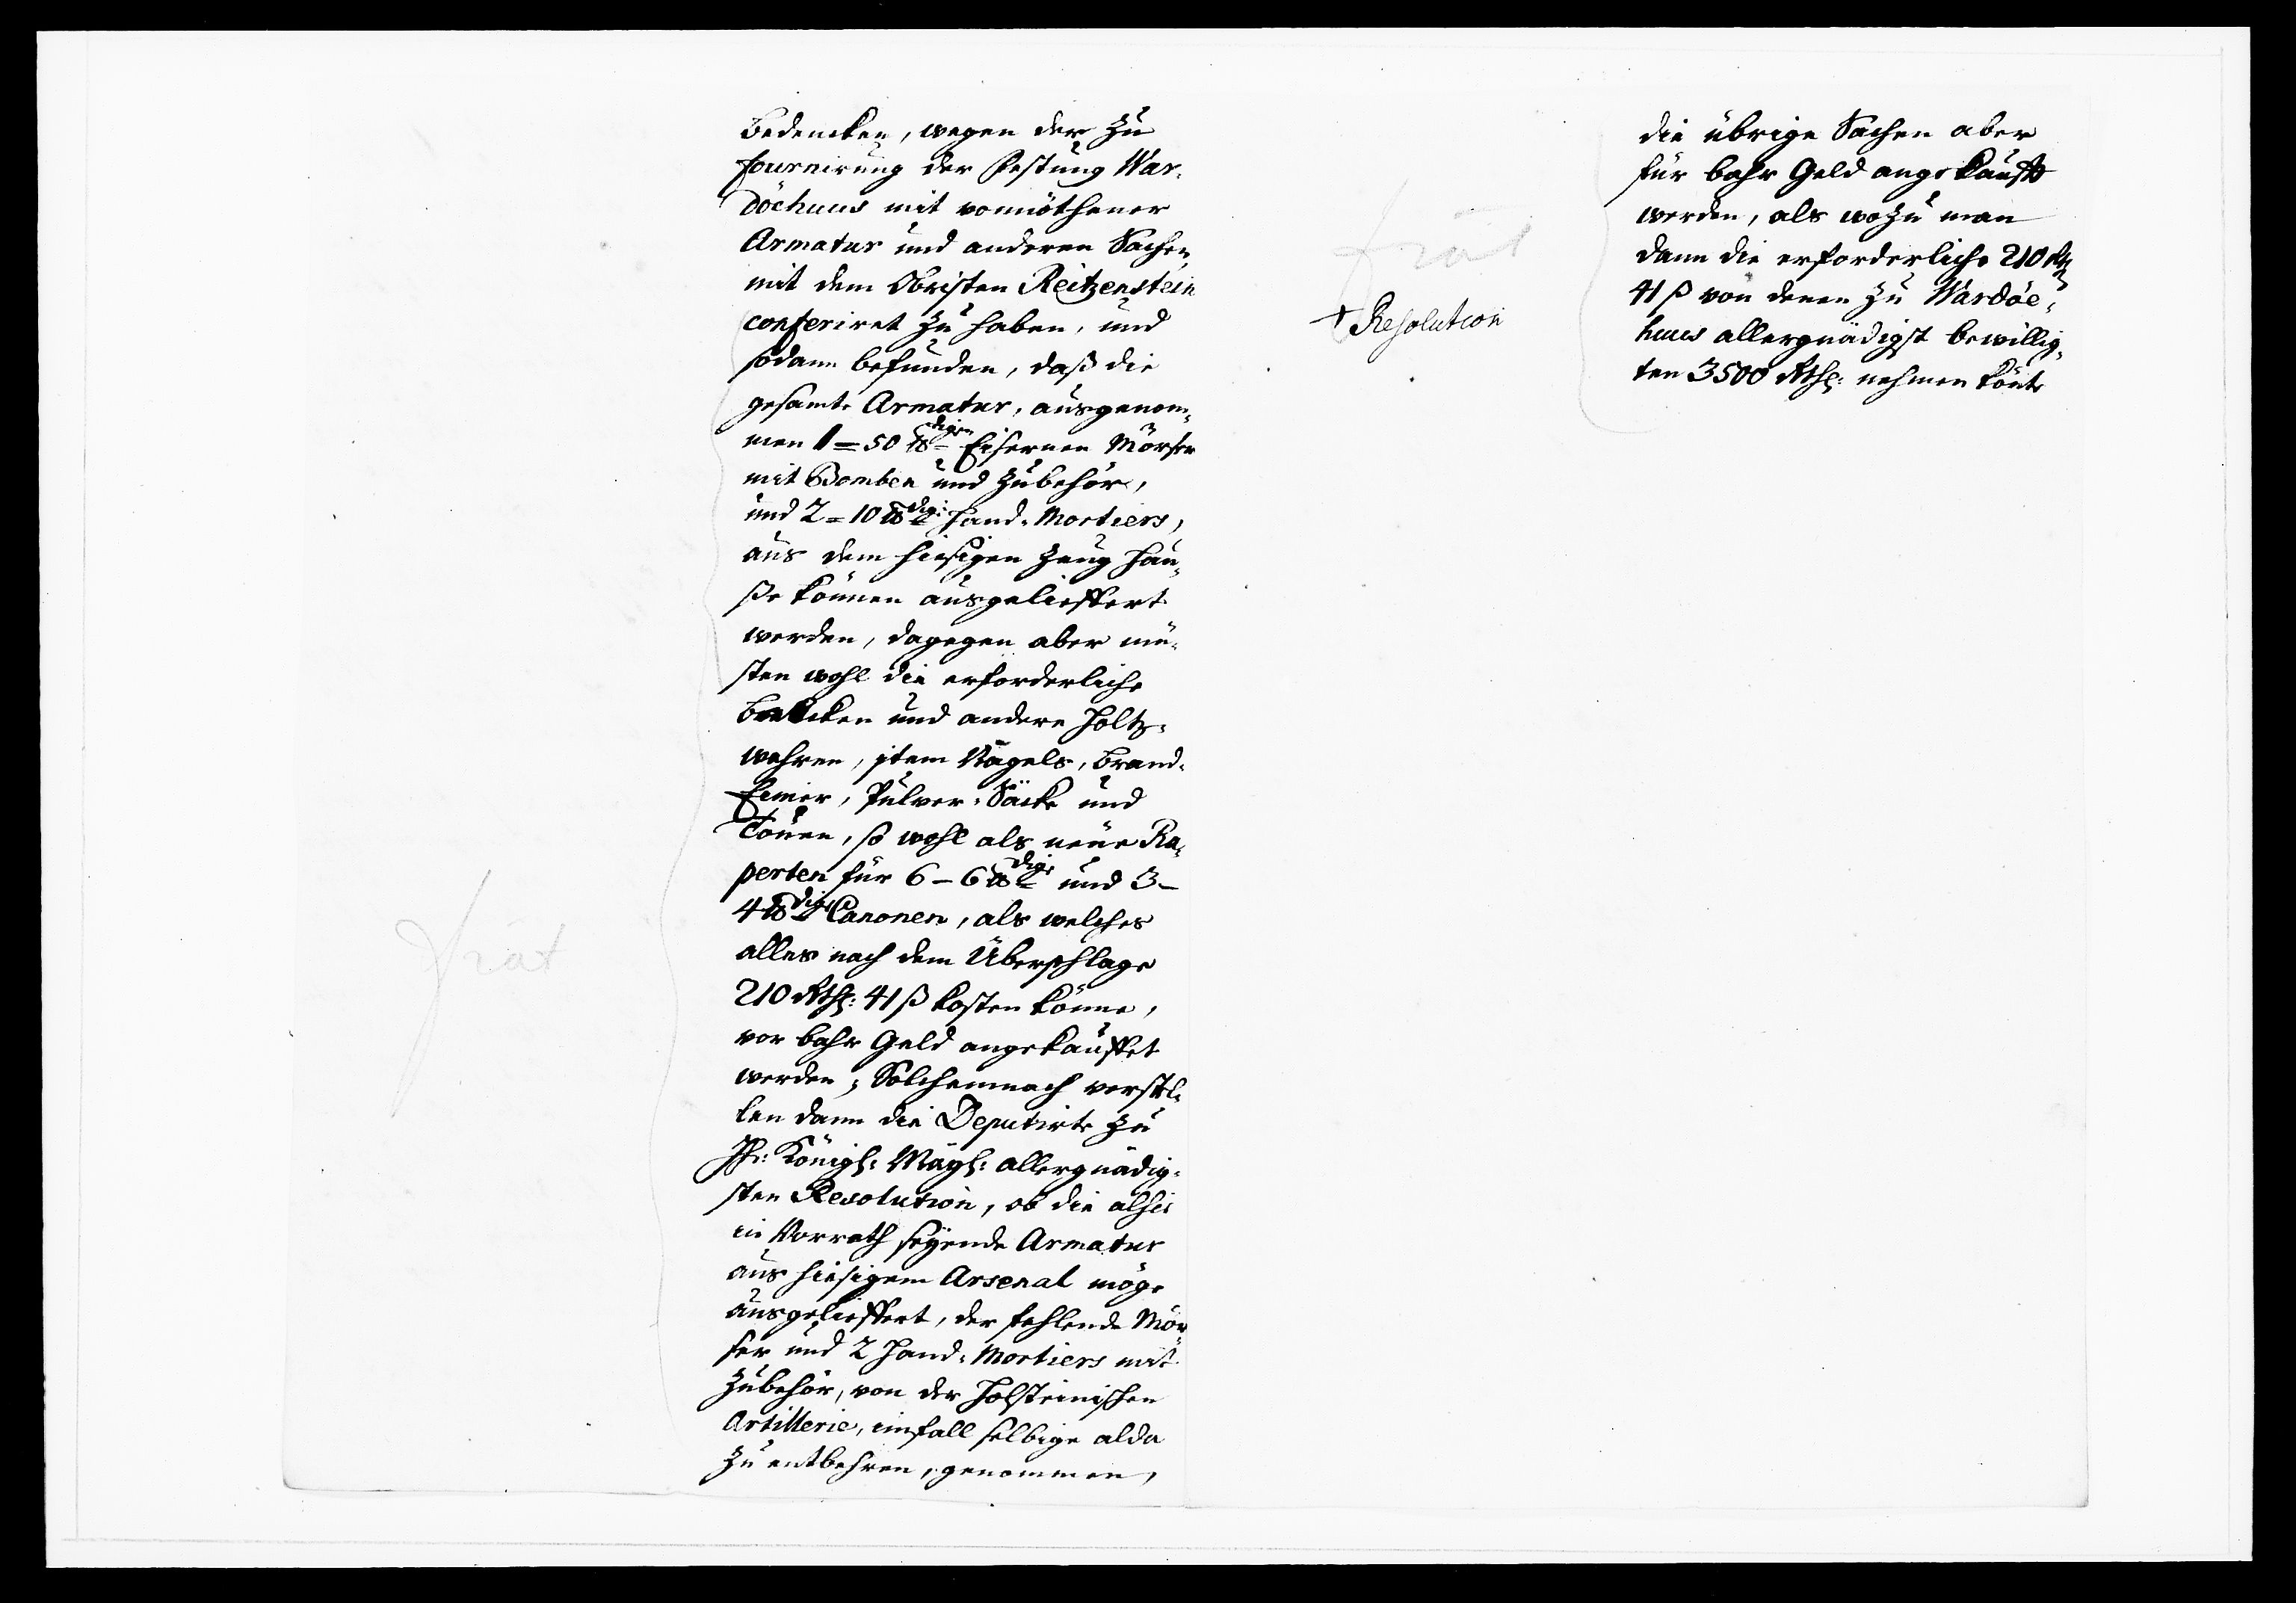 Bedencken, wegen der zu
fournirung der Festung War-
döehuus mit vonnöthener
Armatur und anderen Sachen,
mit dem Obristen Reitzenstein
conferiret zu haben, und
sodann befunden, daß die
gesamte Armatur, ausgenom-
men 1=50 ℔digen Eisernen Mörser
mit Bomben und Zubehör,
und 2=10 ℔dige Hand-Mortiers,
aus dem hiesigen Zeughau-
ße können ausgelieffert
werden, dagegen aber mü-
sten wohl die erforderliche
Balcken und andere Holtz-
wahren, item Nägels, Brand-
Eimer, Pulver-Säcke und
Tonnen, so wohl als neue Ra-
perten für 6-6 ℔dige und 3-
4 ℔dige Canonen, als welches
alles nach dem Überschlage
210 Rthl: 41 ß kosten könne,
vor bahr Geld angekauffet
werden; Solchemnach verstel-
len dann die Deputirte zu
Ihr: Königl: Mayt: allergnädig-
sten Resolution, ob die alhie
in Vorrath seyende Armatur
aus hiesigem Arsenal möge
ausgelieffert, der fehlende Mör-
ser und 2 Hand-Mortiers mit
Zubehör, von der Holsteinischen
Artillerie, imfall selbige alda
zu entbehren, genommen,
+ Resolution
die übrige Sachen aber
für bahr Geld angekaufft
werden, als wozu man
dann die erforderliche 210 Rthl
41 ß von denen zu Wardöe-
huus allergnädigst bewillig-
ten 3500 Rthl: nehmen könte